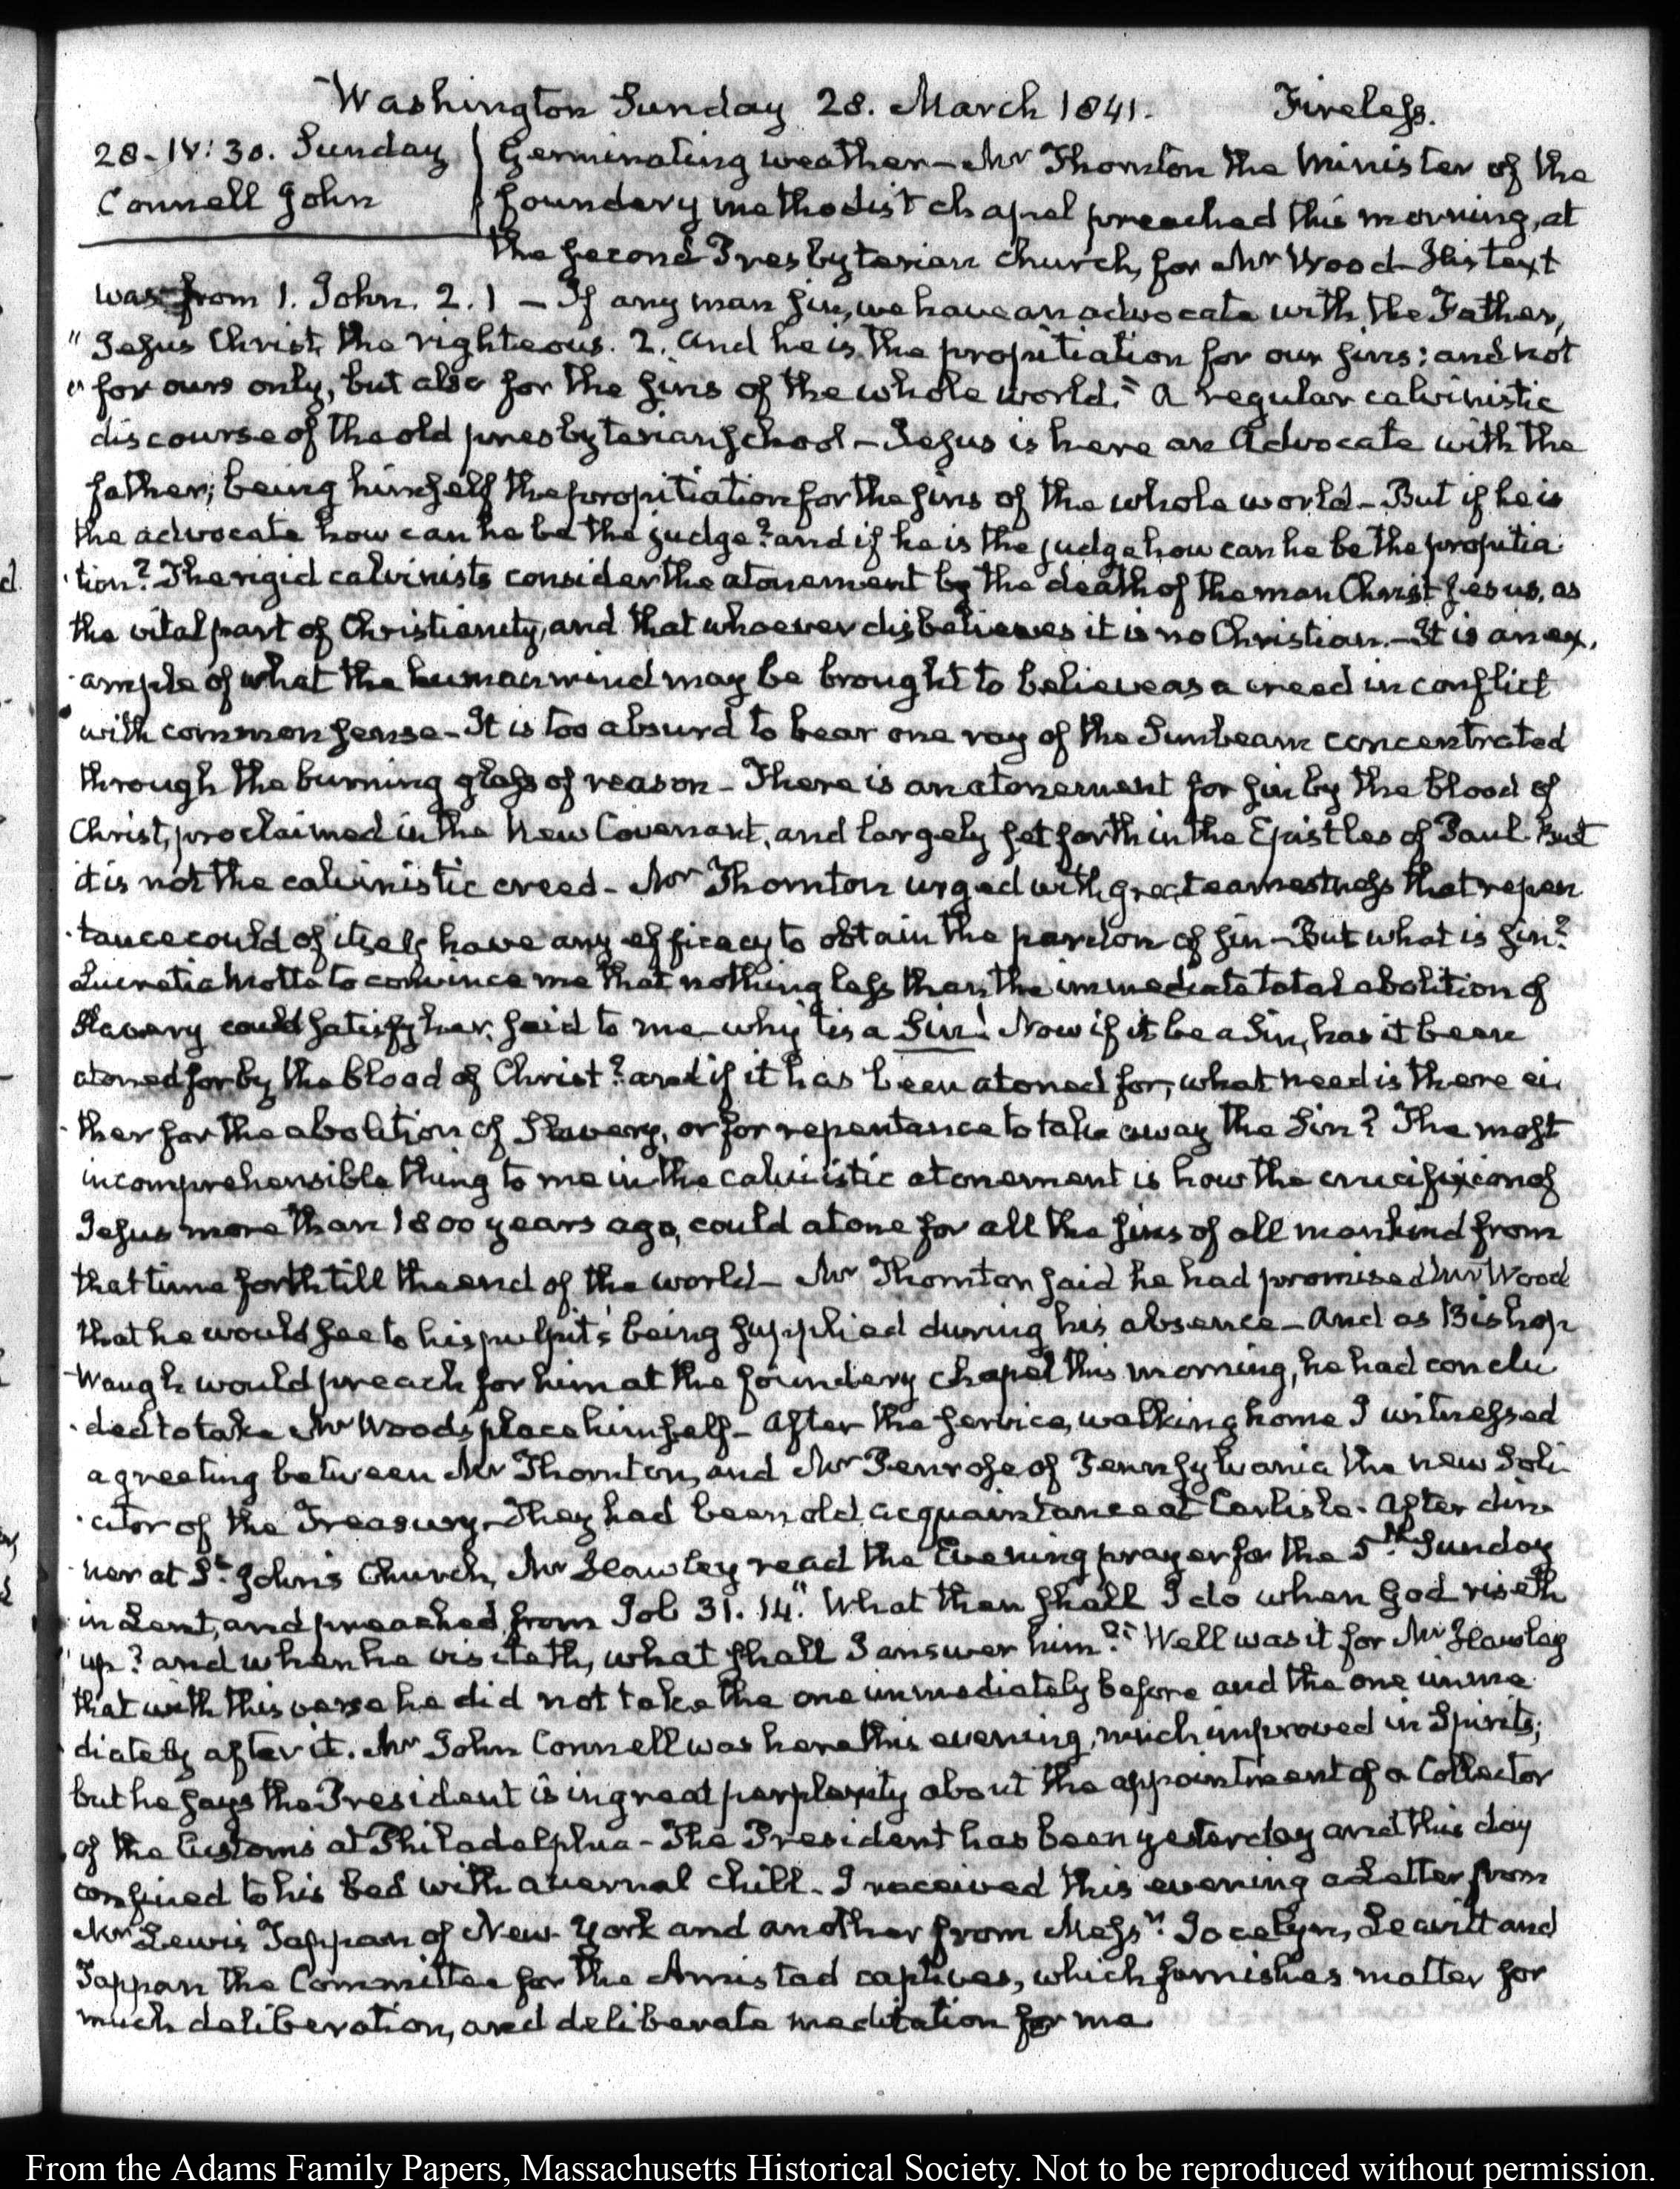 Washington Sunday 28. March 1841. Fireless.
28 – IV: 30. Sunday
Connell John
Germinating weather – Mr Thornton the Minister of the
foundery methodist chapel preached this morning, at
the second Presbyterian church, for Mr Wood – His text
was from 1. John. 2. 1 – If any man sin, we have an advocate with the Father,
" Jesus Christ, the righteous. 2. And he is the propitiation for our sins: and not
" for ours only, but also for the sins of the whole world." A regular calvinistic
discourse of the old presbyterian school – Jesus is here an Advocate with the
father; being himself the propitiation for the sins of the whole world – But if he is
the advocate how can he be the judge? and if he is the judge how can he be the propitia
tion? The rigid calvinists consider the atonement by the death of the man Christ Jesus, as
the vital part of Christianity, and that whoever disbelieves it is no Christian. – It is an ex,
ample of what the human mind may be brought to believe as a creed in conflict
with common sense – It is too absurd to bear one ray of the Sunbeam concentrated
through the burning glass of reason – There is an atonement for sin by the blood of
Christ, proclaimed in the New Covenant, and largely set forth in the Epistles of Paul. But
it is not the calvinistic creed – Mr Thornton urged with great earnestness that repen
tance could of itself have any efficacy to obtain the pardon of sin – But what is sin?
Lucretia Mott to convince me that nothing less than the immediate total abolition of
Slavery could satisfy her, said to me – why 'tis a Sin! Now if it be a Sin, has it been
atoned for by the blood of Christ? and if it has been atoned for, what need is there ei
ther for the abolition of Slavery, or for repentance to take away the Sin? The most
incomprehensible thing to me in the calvinistic atonement is how the crucifixion of
Jesus more than 1800 years ago, could atone for all the sins of all mankind from
that time forth till the end of the world – Mr Thornton said he had promised Mr Wood
that he would see to his pulpit's being supplied during his absence – And as Bishop
Waugh would preach for him at the foundery chapel this morning, he had conclu
ded to take Mr Wood's place himself – After the service, walking home I witnessed
a greeting between Mr Thornton, and Mr Penrose of Pennsylvania the new Soli
citor of the Treasury – They had been old acquaintance at Carlisle. After din
ner at St. John's Church, Mr Hawley read the Evening prayer for the 5th. Sunday
in Lent, and preached from Job 31. 14. " What then shall I do when God riseth
up? and when he visiteth, what shall I answer him?" Well was it for Mr Hawley
that with this verse he did not take the one immediately before and the one imme
diately after it. Mr John Connell was here this evening, much improved in Spirits;
but he says the President is in great perplexity about the appointment of a Collector
of the Customs at Philadelphia – The President has been yesterday and this day
confined to his bed with a vernal chill – I received this evening a Letter from
Mr Lewis Tappan of New-York and another from Messrs. Jocelyn, Leavitt and
Tappan the Committee for the Amistad captives, which furnishes matter for
much deliberation, and deliberate meditation for me.
From the Adams Family Papers, Massachusetts Historical Society. Not to be reproduced without permission.